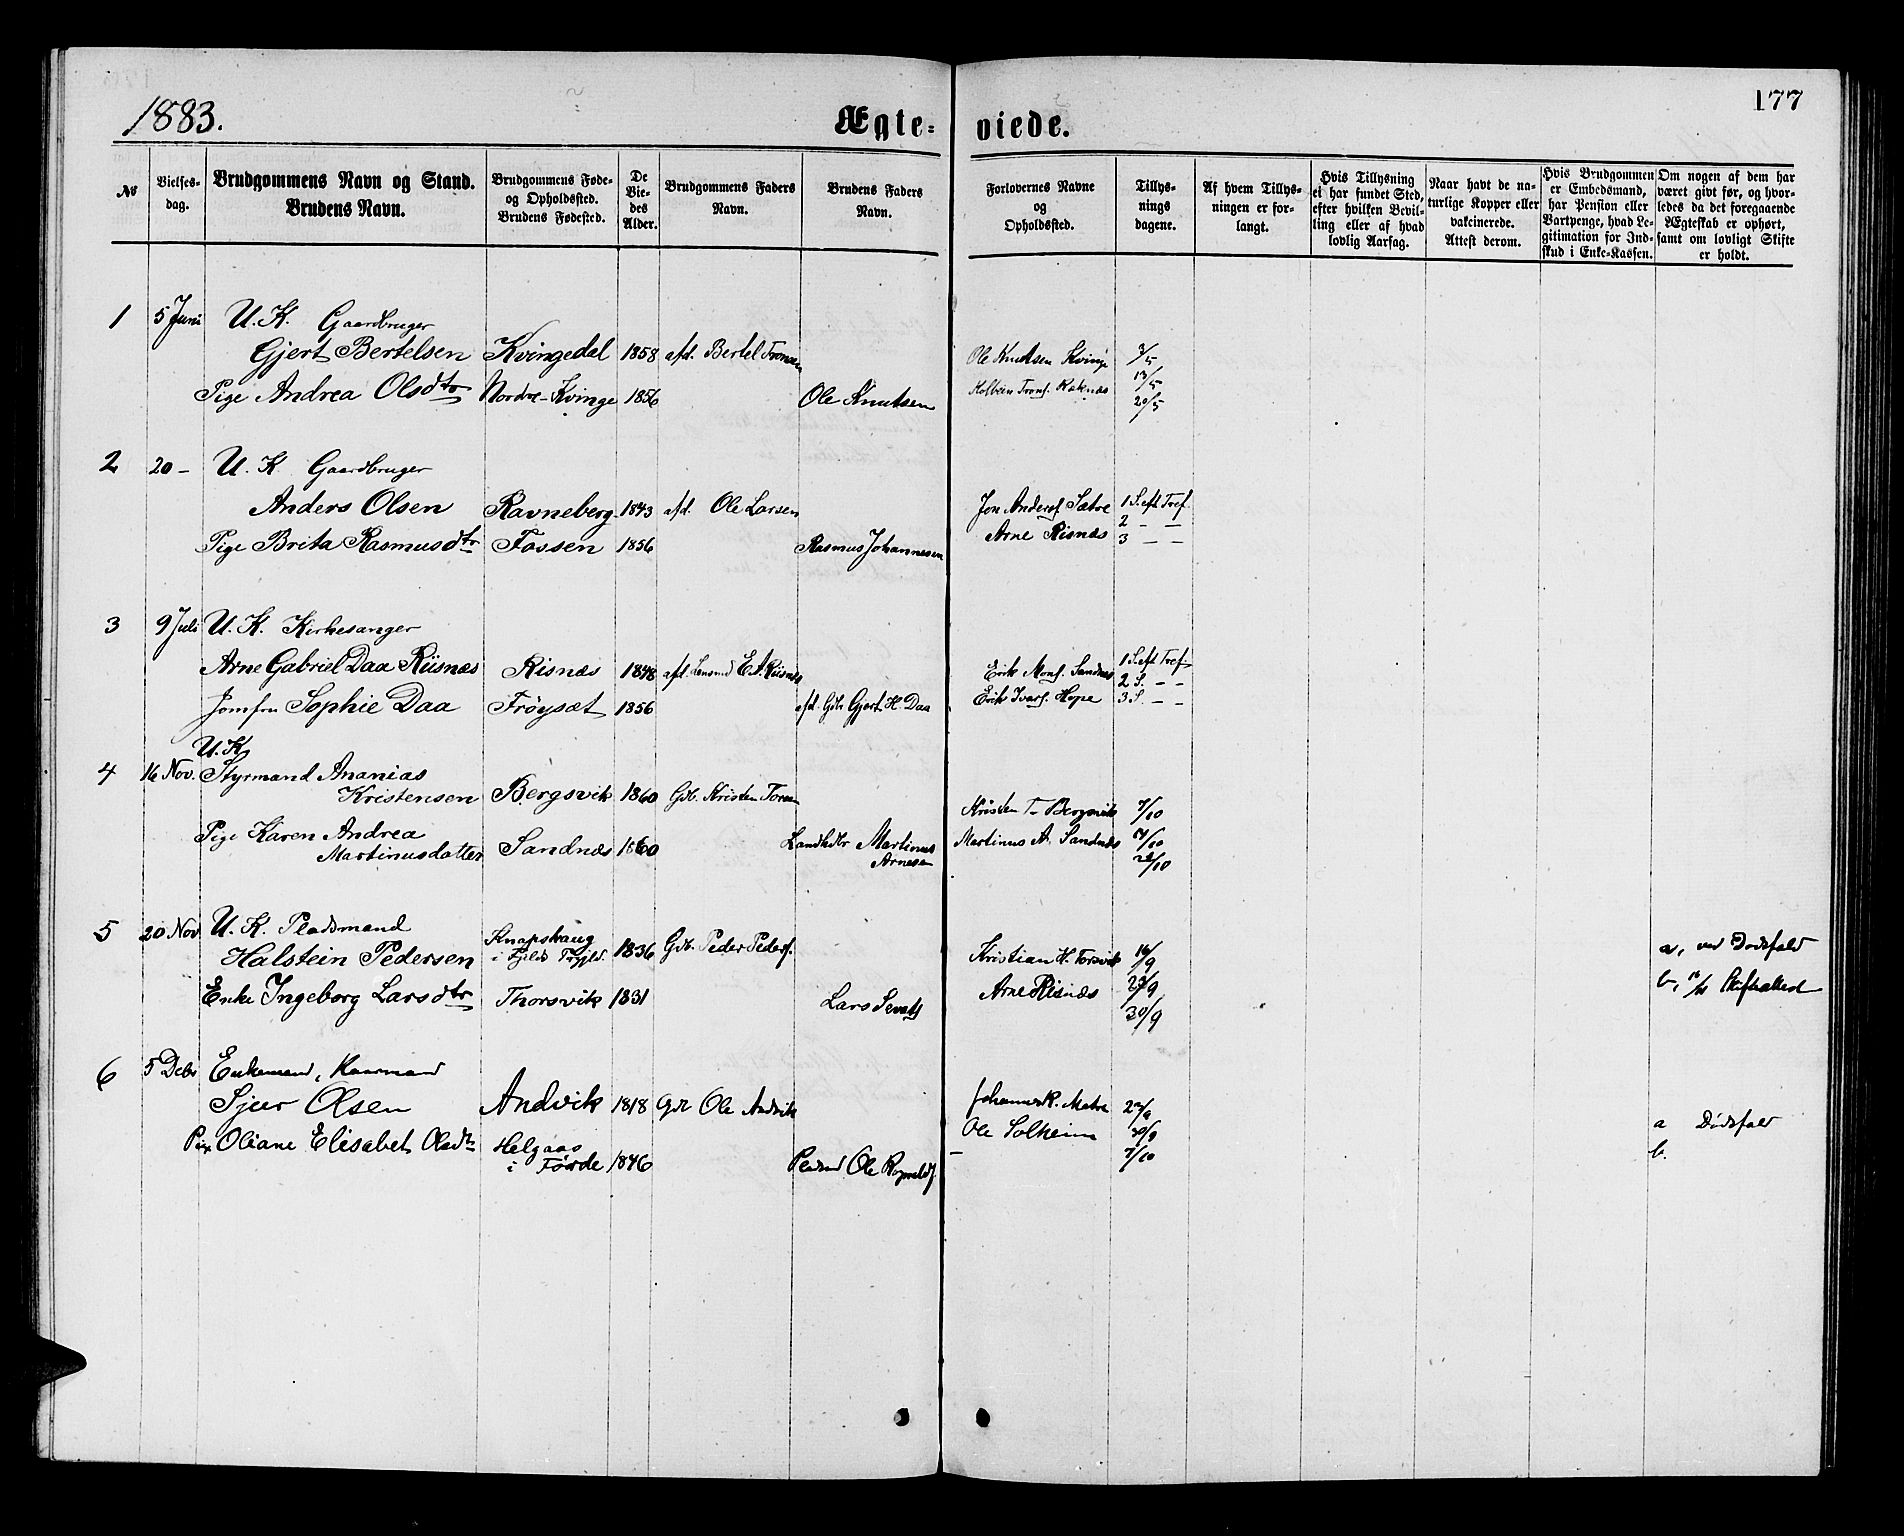 1883.
Ægte-
viede.
177
No
Vielses-
dag.
Brudgommens Navn og Stand.
Brudens Navn.
Brudgommens Føde-
og Opholdssted.
Brudens Fødested.
De
Vie-
des
Alder.
Brudgommens Faders
Navn.
Brudens Faders
Navn.
Forlovernes Navne
og
Opholdssted.
Tillys-
nings
dagene.
Af hvem Tillys-
ningen er for-
langt.
Hvis Tillysning
ei har fundet Sted,
efter hvilken Bevil-
ling eller af hvad
lovlig Aarsag.
Naar havt de na-
turlige Kopper eller
vakcinerede.
Attest derom.
Hvis Brudgommen
er Embedsmand,
har Pension eller
Vartpenge, hvad Le-
gitimation for Ind-
skud i Enke-Kassen.
Om nogen af dem har
været givt før, og hvor-
ledes da det foregaaende
Ægteskab er ophørt,
samt om lovligt Skifte
er holdt.
1 5 Juni U. K. Gaardbruger
Gjert Bertelsen Kvingedal 1858 afd. Bertel Ole Knutsen Kvinge 3/5
Pige Andrea Olsdtr Nordre-Kvinge 1856 Ole Knutsen 13/5
20/5
2 20 - U. K Gaardbruger
Anders Olsen Ravneberg 1843 afd. Ole Larsen Jon Anders. Sætre 1 S. eft Tref.
Pige Brita Rasmusdtr Fossen 1856 Rasmus Johannesen Arne Risnæs 2 - -
3 - -
3 9 Juli U. K. Kirkesanger
Arne Gabriel Daa Riisnæs Risnæs 1848 afd. Lensmd E. A. Riisnæs Erik Mons. Sandnæs 1 S. eft Tref.
Jomfru Sophie Daa Frøyset 1856 afd. Gbr Gjert H. Daa Erik Ivars. Hope 2 S. - -
3 S. - -
U. K
4 16 Nov. Styrmand Ananias
Kristensen Bergsvik 1860 Gdb. Kristen Kristen T- Bergsvik 7/10
Pige Karen Andrea
Martinusdatter Sandnæs 1860 Martinus Arnesen Martinus A. Sandnæs /10
/10
5 20 Nov U. K. Pladsmand
Halstein Pedersen Knapskaug
i 1836 Gdb. Peder Peders. Kristian H. Torsvik 16/9 a, ved Dødsfald
Enke Ingeborg Larsdtr Thorsvik 1831 Lars Arne Risnæs 23/9 b,
30/9
6 5 Debr Enkemand, Kaarmand
Sjur Olsen Andvik 1818 Gdb Ole Andvik Johannes K. Matre /9 a Dødsfald
Pige Oliane Elisabet Olsdtr Helgaas
i Førde 1846 Ole Ole Solheim 30/9 b.
- 7/10